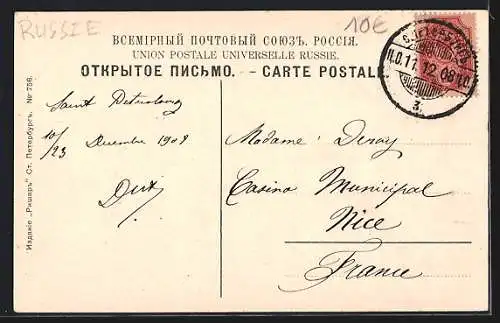 RUSSIE
10€
ВСЕМІРНЫЙ ПОЧТОВЫЙ СОЮЗЪ. РОССІЯ.
UNION POSTALE UNIVERSELLE RUSSIE.
ОТКРЫТОЕ ПИСЬМО. - CARTE POSTALE.
11.12.08
3.
Saint Petersbourg
10/23 Decembre 1908
Madame
Casino Municipal
Nice
France
Изданіе „Ришаръ" Ст. Петербургъ. № 756.